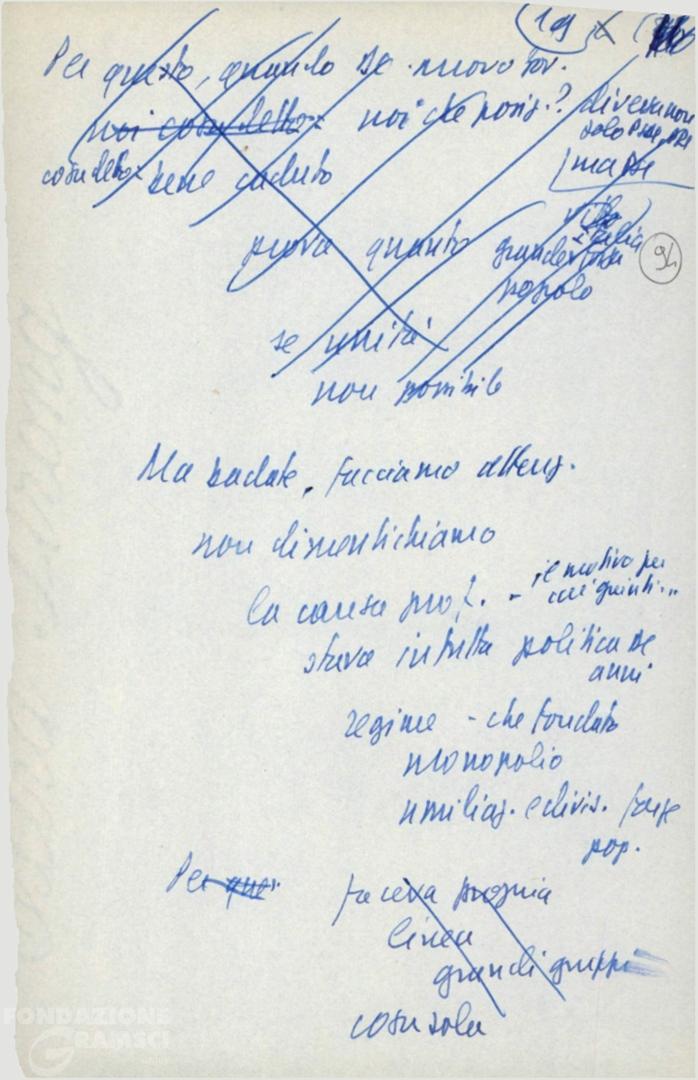 109
Per questo, quando se nuovo gov.
noi cosa detto: noi che posiz.? diveva non
solo PSU, PRI
ma DC
cosa detto: bene caduto
prova quanto grande forza
Italia
popolo
94
se unità
non possibile
Ma badate, facciamo attenz.
non dimentichiamo
la causa prof. - il motivo per
cui quindi...
stava in tutta politica DC
anni
regime - che fondato
monopolio
umiliaz. e divis. forze
pop.
Per que
faceva propria
linea
grandi gruppi
cosa sola
FONDAZIONE
GRAMSCI